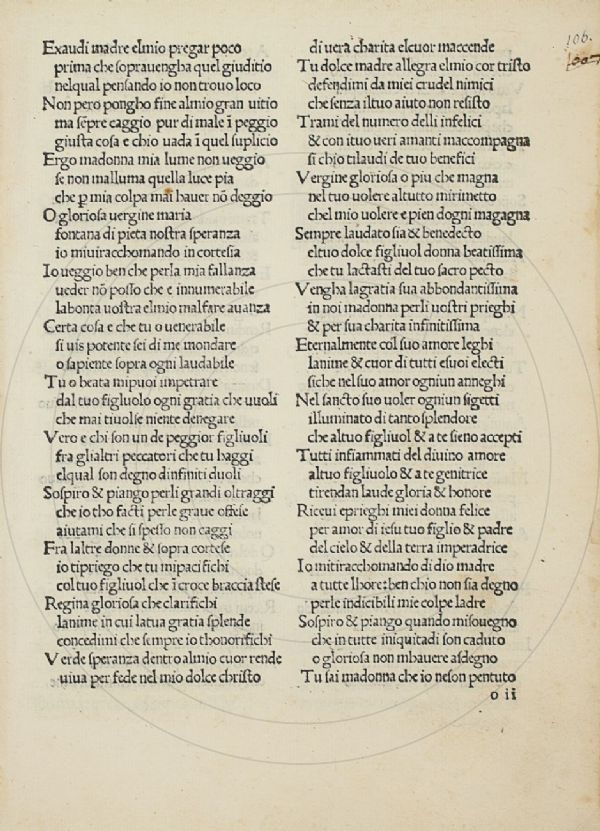 106.
Exaudi madre elmio pregar poco
prima che soprauengha quel giuditio
nelqual pensando io non trouo loco
Non pero pongho fine almio gran uitio
ma sēpre caggio pur di male ī peggio
giusta cosa e chio uada ī quel suplicio
Ergo madonna mia lume non ueggio
se non malluma quella luce pia
che p mia colpa mai hauer nō deggio
O gloriosa uergine maria
fontana di pieta nostra speranza
io miuiracchomando in cortesia
Io ueggio ben che perla mia fallanza
ueder nō posso che e innumerabile
labonta uostra elmio malfare auanza
Certa cosa e che tu o uenerabile
si uis potente sei di me mondare
o sapiente sopra ogni laudabile
Tu o beata mipuoi impetrare
dal tuo figluolo ogni gratia che uuoli
che mai tiuolse niente denegare
Vero e chi son un de peggior figliuoli
fra glialtri peccatori che tu haggi
elqual son degno dinfiniti duoli
Sospiro & piango perli grandi oltraggi
che io tho facti perle graue offese
aiutami che si spesso non caggi
Fra laltre donne & sopra cortese
io tipriego che tu mipacifichi
col tuo figliuol che ī croce braccia stese
Regina gloriosa che clarifichi
lanime in cui latua gratia splende
concedimi che sempre io thonorifichi
Verde speranza dentro almio cuor rende
uiua per fede nel mio dolce christo
di uera charita elcuor maccende
Tu dolce madre allegra elmio cor tristo
defendimi da miei crudel nimici
che senza iltuo aiuto non resisto
Trami del numero delli infelici
& con ituo ueri amanti maccompagna
si chio tilaudi de tuo benefici
Vergine gloriosa o piu che magna
nel tuo uolere altutto mirimetto
chel mio uolere e pien dogni magagna
Sempre laudato sia & benedecto
eltuo dolce figliuol donna beatissima
che tu lactasti del tuo sacro pecto
Vengha lagratia sua abbondantissima
in noi madonna perli uostri prieghi
& per sua charita infinitissima
Eternalmente col suo amore leghi
lanime & cuor di tutti esuoi electi
siche nel suo amor ogniun anneghi
Nel sancto suo uoler ogniun sigetti
illuminato di tanto splendore
che altuo figliuol & a te sieno accepti
Tutti infiammati del diuino amore
altuo figliuolo & a te genitrice
tirendan laude gloria & honore
Riceui eprieghi miei donna felice
per amor di iesu tuo figlio & padre
del cielo & della terra imperadrice
Io mitiracchomando di dio madre
a tutte lhore: ben chio non sia degno
perle indicibili mie colpe ladre
Sospiro & piango quando misouegno
che in tutte iniquitadi son caduto
o gloriosa non mhauere asdegno
Tu sai madonna che io neson pentuto
o ii